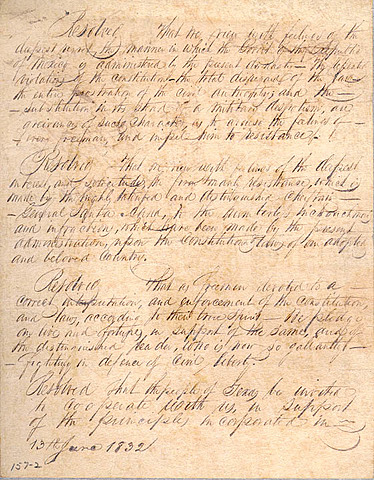 Resolved That we view with feelings of the
deepest regret, the manner in which the Govt of the Republic
of Mexico is administered by the present dynasty — The repeated
violations of the constitution — the total disregard of the law —
the entire prostration of the civil authority; and the —
substitution in its stead of a military despotism, are
grievances of such character, as to arouse the feelings of —
every freeman, and impel him to resistance —
Resolved — That we view with feelings of the deepest
interest, and solicitude, the firm & manly resistance, which is
made by the highly talented and distinguished Chieftain —
General Santa Anna, to the numberless encroachments
and infractions, which have been made by the present
administration, upon the Constitution & laws of our adopted
and beloved Country.
Resolved That as Freemen devoted to a —
correct interpretation, and enforcement of the Constitution,
and laws, according to their true Spirit — We pledge
our lives and fortunes, in support of the same, and of
the distinguished leader, who is now so gallantly —
fighting in defence of Civil liberty.
Resolved That the people of Texas be invited
to cooperate with us, in support
of the principles incorporated in —
13th June 1832
157-2